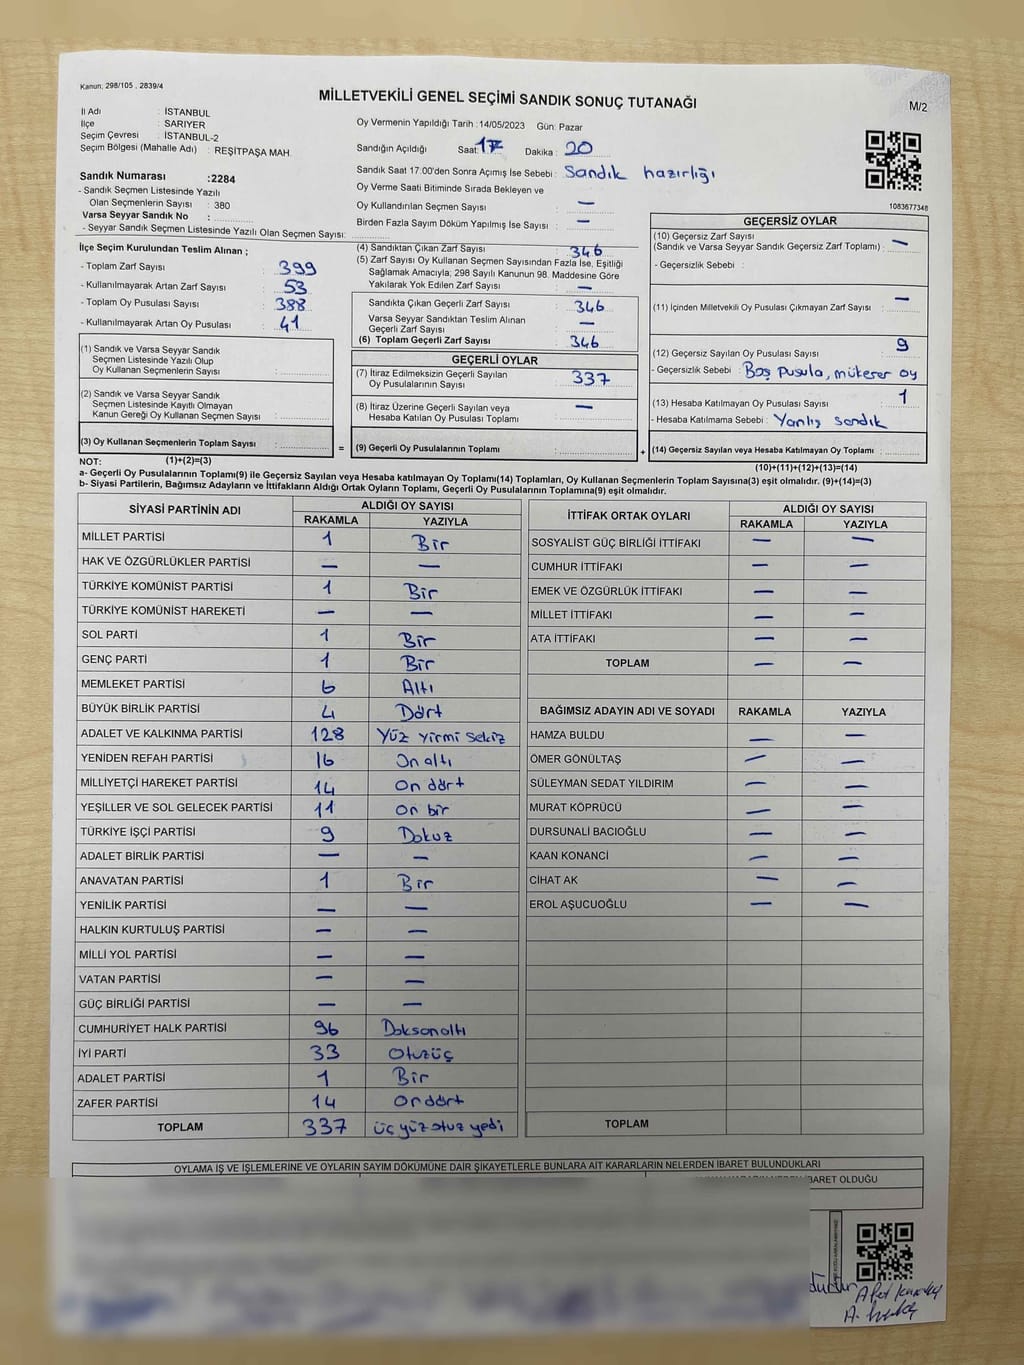 Kanun, 298/105 , 2839/4
MİLLETVEKİLİ GENEL SEÇİMİ SANDIK SONUÇ TUTANAĞI
M/2
İl Adı : İSTANBUL
İlçe : SARIYER
Seçim Çevresi : İSTANBUL-2
Seçim Bölgesi (Mahalle Adı) : REŞİTPAŞA MAH.
Sandık Numarası :2284
- Sandık Seçmen Listesinde Yazılı
Olan Seçmenlerin Sayısı : 380
Varsa Seyyar Sandık No :
- Seyyar Sandık Seçmen Listesinde Yazılı Olan Seçmen Sayısı:
İlçe Seçim Kurulundan Teslim Alınan ;
- Toplam Zarf Sayısı : 399
- Kullanılmayarak Artan Zarf Sayısı : 53
- Toplam Oy Pusulası Sayısı : 388
- Kullanılmayarak Artan Oy Pusulası : 41
(1) Sandık ve Varsa Seyyar Sandık
Seçmen Listesinde Yazılı Olup
Oy Kullanan Seçmenlerin Sayısı :
(2) Sandık ve Varsa Seyyar Sandık
Seçmen Listesinde Kayıtlı Olmayan
Kanun Gereği Oy Kullanan Seçmen Sayısı :
(3) Oy Kullanan Seçmenlerin Toplam Sayısı :
Oy Vermenin Yapıldığı Tarih :14/05/2023 Gün: Pazar
Sandığın Açıldığı Saat: 17 Dakika : 20
Sandık Saat 17:00'den Sonra Açımış İse Sebebi : Sandık hazırlığı
Oy Verme Saati Bitiminde Sırada Bekleyen ve
Oy Kullandırılan Seçmen Sayısı : —
Birden Fazla Sayım Döküm Yapılmış İse Sayısı : —
(4) Sandıktan Çıkan Zarf Sayısı : 346
(5) Zarf Sayısı Oy Kullanan Seçmen Sayısından Fazla İse, Eşitliği
Sağlamak Amacıyla; 298 Sayılı Kanunun 98. Maddesine Göre
Yakılarak Yok Edilen Zarf Sayısı : —
Sandıkta Çıkan Geçerli Zarf Sayısı : 346
Varsa Seyyar Sandıktan Teslim Alınan
Geçerli Zarf Sayısı : —
(6) Toplam Geçerli Zarf Sayısı : 346
GEÇERLİ OYLAR
(7) İtiraz Edilmeksizin Geçerli Sayılan
Oy Pusulalarının Sayısı : 337
(8) İtiraz Üzerine Geçerli Sayılan veya
Hesaba Katılan Oy Pusulası Toplamı : —
= (9) Geçerli Oy Pusulalarının Toplamı :
1083677348
GEÇERSİZ OYLAR
(10) Geçersiz Zarf Sayısı
(Sandık ve Varsa Seyyar Sandık Geçersiz Zarf Toplamı) : —
- Geçersizlik Sebebi :
(11) İçinden Milletvekili Oy Pusulası Çıkmayan Zarf Sayısı : —
(12) Geçersiz Sayılan Oy Pusulası Sayısı : 9
- Geçersizlik Sebebi : Boş pusula, mükerer oy
(13) Hesaba Katılmayan Oy Pusulası Sayısı : 1
- Hesaba Katılmama Sebebi : Yanlış sandık
+ (14) Geçersiz Sayılan veya Hesaba Katılmayan Oy Toplamı :
NOT: (1)+(2)=(3)
(10)+(11)+(12)+(13)=(14)
a- Geçerli Oy Pusulalarının Toplamı(9) ile Geçersiz Sayılan veya Hesaba katılmayan Oy Toplamı(14) Toplamları, Oy Kullanan Seçmenlerin Toplam Sayısına(3) eşit olmalıdır. (9)+(14)=(3)
b- Siyasi Partilerin, Bağımsız Adayların ve İttifakların Aldığı Ortak Oyların Toplamı, Geçerli Oy Pusulalarının Toplamına(9) eşit olmalıdır.
SİYASİ PARTİNİN ADI ALDIĞI OY SAYISI
RAKAMLA YAZIYLA
MİLLET PARTİSİ 1 Bir
HAK VE ÖZGÜRLÜKLER PARTİSİ — —
TÜRKİYE KOMÜNİST PARTİSİ 1 Bir
TÜRKİYE KOMÜNİST HAREKETİ — —
SOL PARTİ 1 Bir
GENÇ PARTİ 1 Bir
MEMLEKET PARTİSİ 6 Altı
BÜYÜK BİRLİK PARTİSİ 4 Dört
ADALET VE KALKINMA PARTİSİ 128 Yüz Yirmi Sekiz
YENİDEN REFAH PARTİSİ 16 On altı
MİLLİYETÇİ HAREKET PARTİSİ 14 On dört
YEŞİLLER VE SOL GELECEK PARTİSİ 11 On bir
TÜRKİYE İŞÇİ PARTİSİ 9 Dokuz
ADALET BİRLİK PARTİSİ — —
ANAVATAN PARTİSİ 1 Bir
YENİLİK PARTİSİ — —
HALKIN KURTULUŞ PARTİSİ — —
MİLLİ YOL PARTİSİ — —
VATAN PARTİSİ — —
GÜÇ BİRLİĞİ PARTİSİ — —
CUMHURİYET HALK PARTİSİ 96 Doksanaltı
İYİ PARTİ 33 Otuzüç
ADALET PARTİSİ 1 Bir
ZAFER PARTİSİ 14 Ondört
TOPLAM 337 üç yüz otuz yedi
İTTİFAK ORTAK OYLARI ALDIĞI OY SAYISI
RAKAMLA YAZIYLA
SOSYALİST GÜÇ BİRLİĞİ İTTİFAKI — —
CUMHUR İTTİFAKI — —
EMEK VE ÖZGÜRLÜK İTTİFAKI — —
MİLLET İTTİFAKI — —
ATA İTTİFAKI — —
TOPLAM — —
BAĞIMSIZ ADAYIN ADI VE SOYADI RAKAMLA YAZIYLA
HAMZA BULDU — —
ÖMER GÖNÜLTAŞ — —
SÜLEYMAN SEDAT YILDIRIM — —
MURAT KÖPRÜCÜ — —
DURSUNALİ BACIOĞLU — —
KAAN KONANCİ — —
CİHAT AK — —
EROL AŞUCUOĞLU — —
TOPLAM
OYLAMA İŞ VE İŞLEMLERİNE VE OYLARIN SAYIM DÖKÜMÜNE DAİR ŞİKAYETLERLE BUNLARA AİT KARARLARIN NELERDEN İBARET BULUNDUKLARI
İBARET OLDUĞU